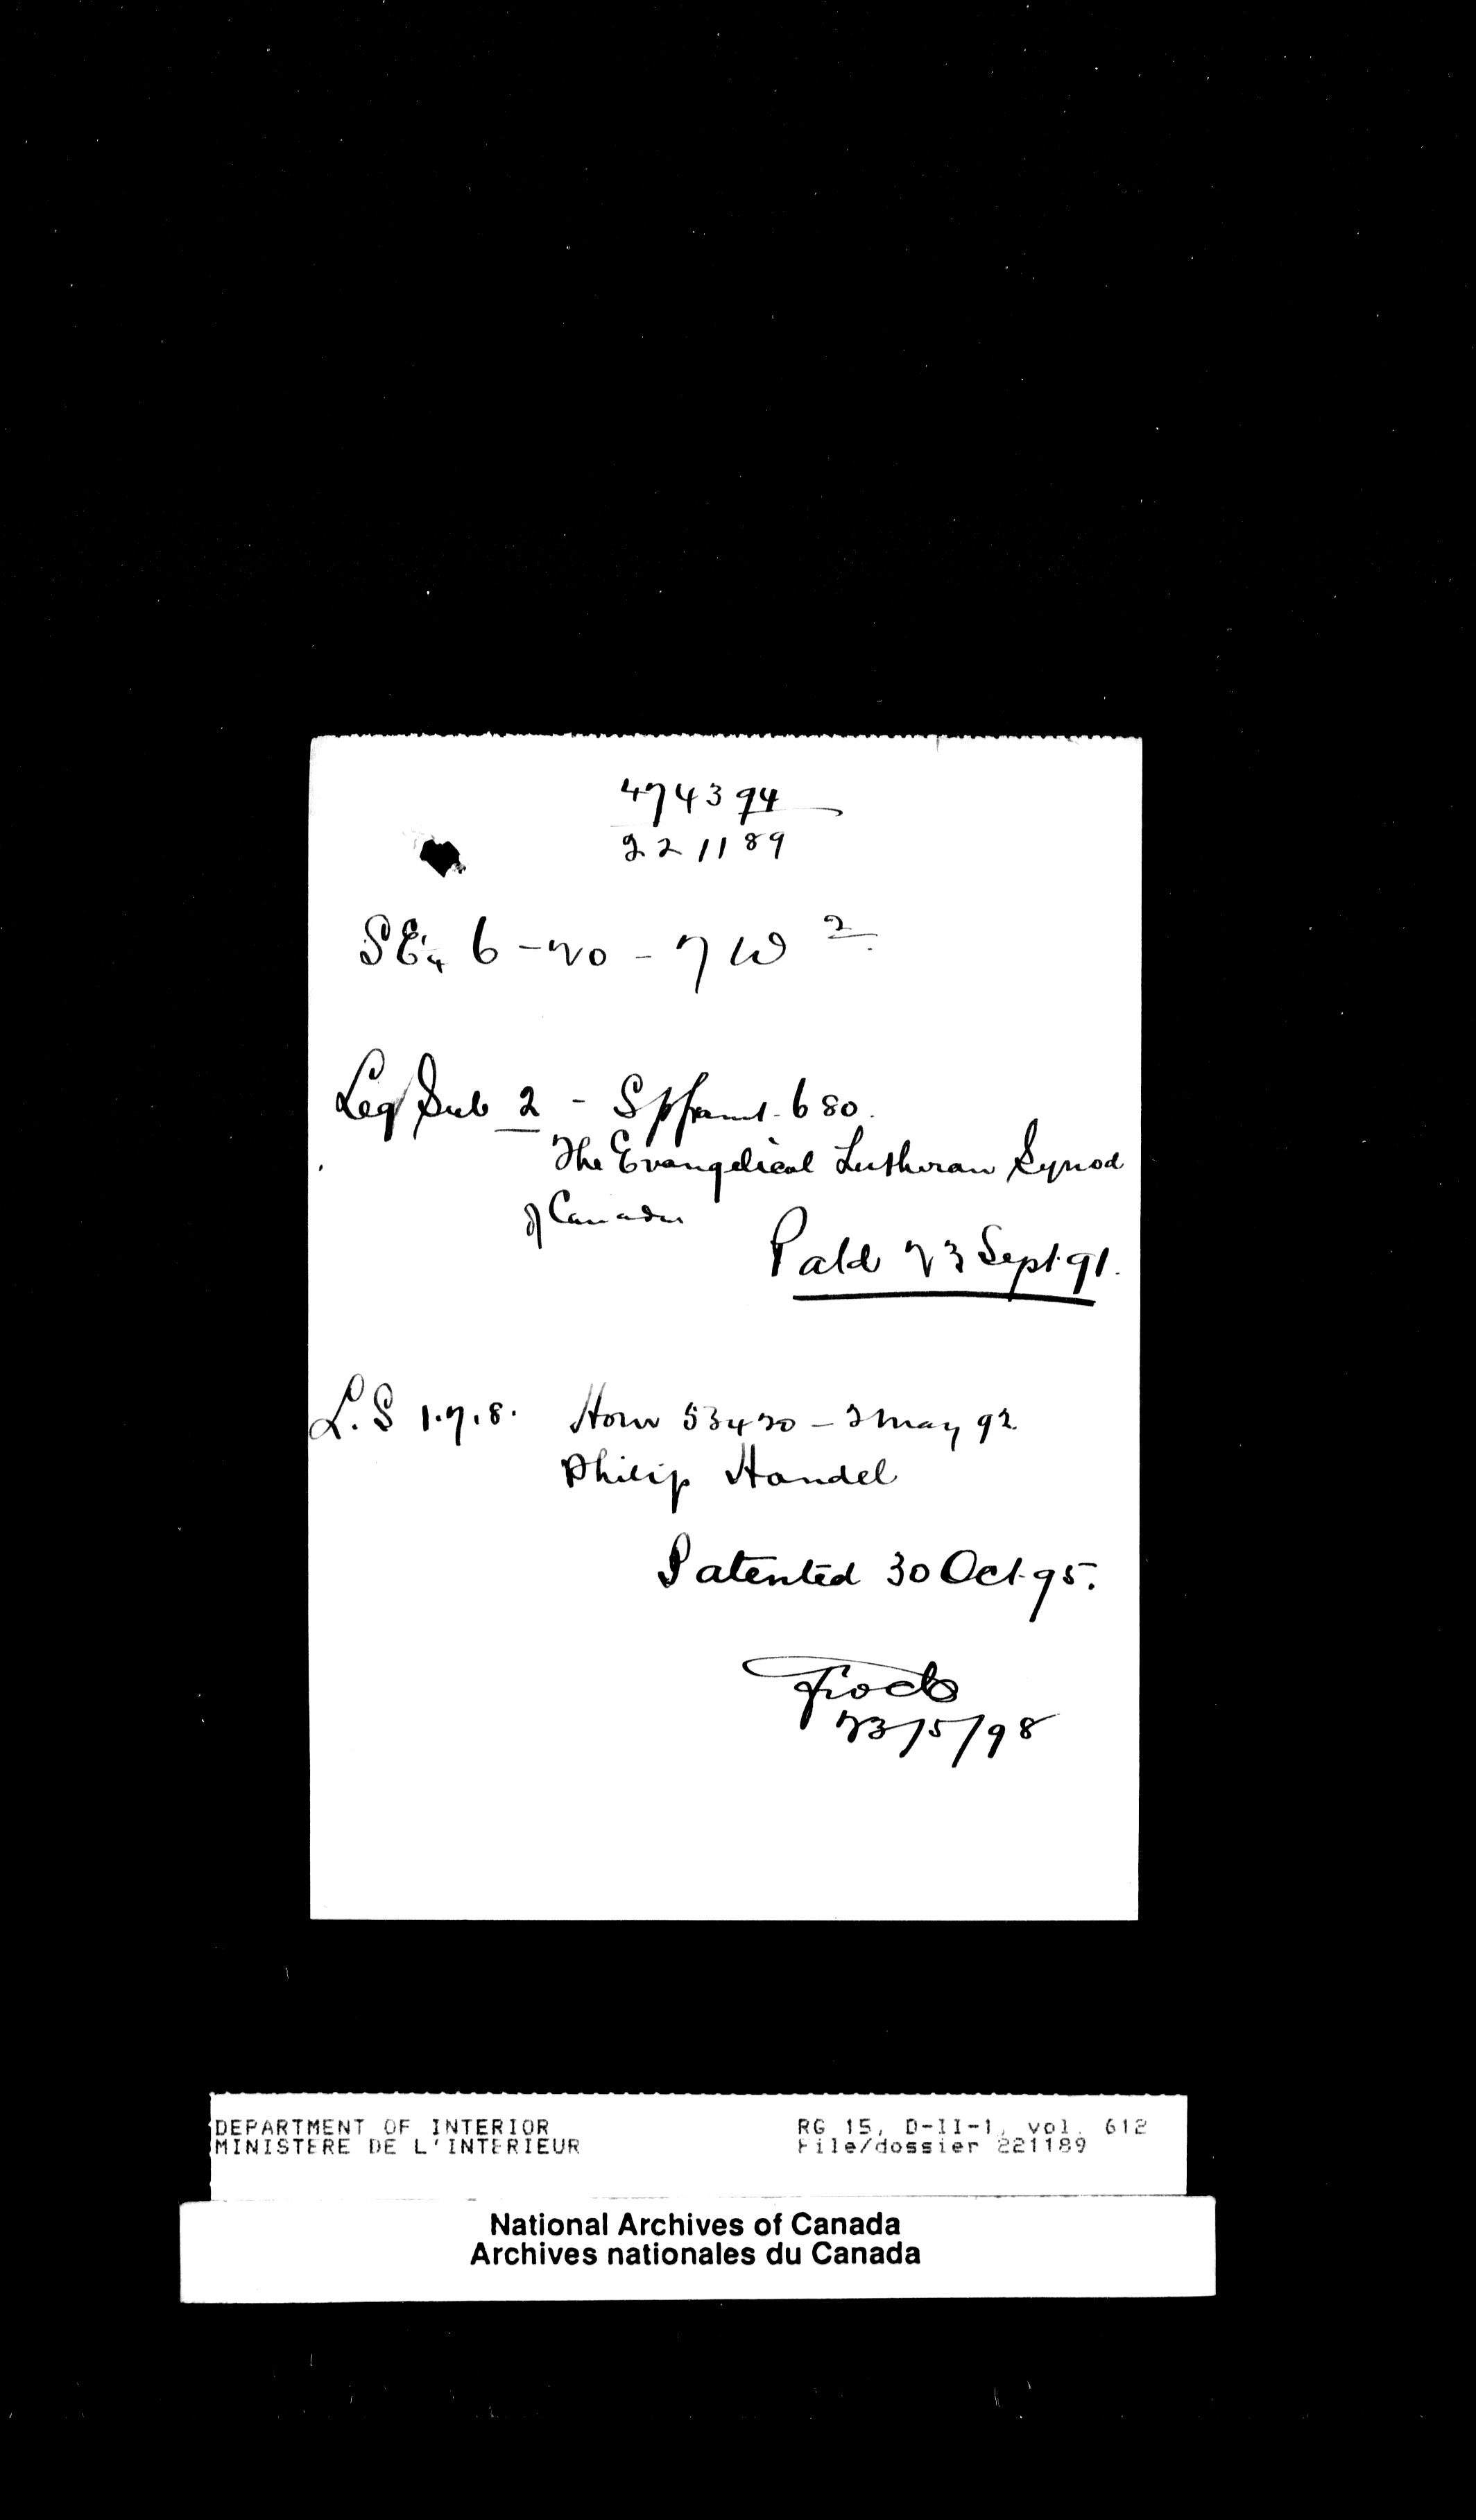 474394
221189
SE¼ 6-20-7 W 2
Leg Sub 2 - 680.
The Evangelical Lutheran Synod
of Canada
Patd 23 Sept. 91.
L.S 1.7.8. Hom 53420 - 2 May 92
Philip Handel
Patented 30 Oct. 95.
23/5/98
DEPARTMENT OF INTERIOR
MINISTERE DE L'INTERIEUR
RG 15, D-II-1, vol. 612
File/dossier 221189
National Archives of Canada
Archives nationales du Canada